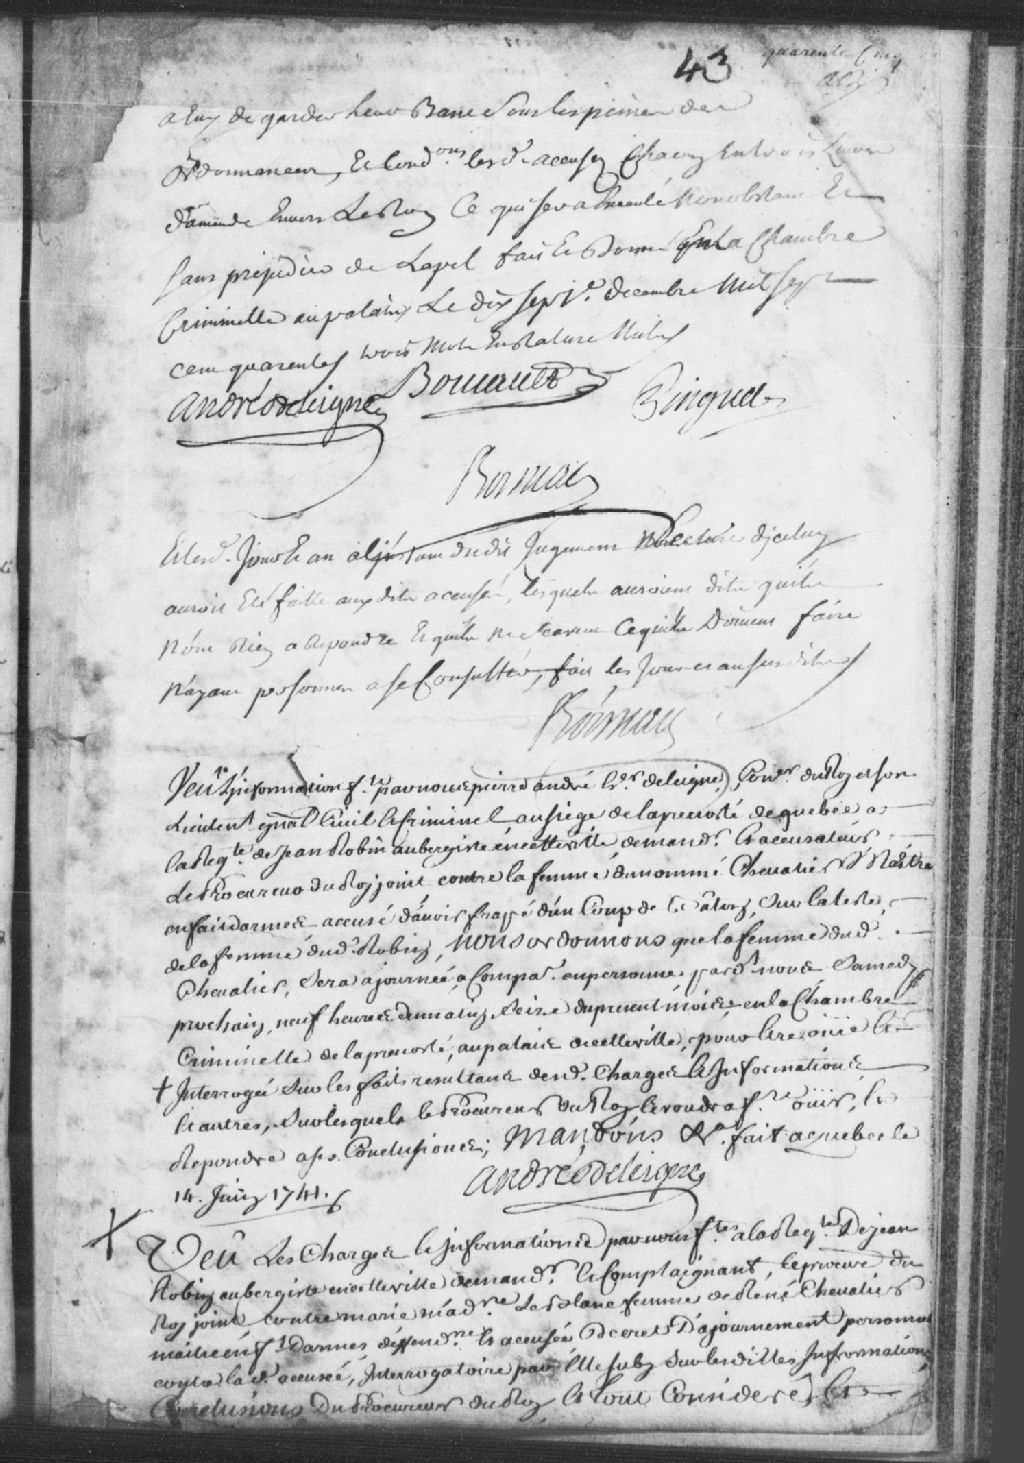 43 quarente Cinq
a Eux de garder leur Banc Sous les peines des
ordonnances, Et Cond.ons les d. accusez Chacun En trois Livres
d'amende Envers Le Roy Ce qui sera Executé Nonobstant Et
Sans prejudice de Lapel fait Et Donné En la Chambre
Criminelle au palais Le dix sept.e decembre Mil Sept
Cent quarente trois Mots En Rature Nuls
André de Leigne Boucault Pinguet
Boisseau
Et led. Jour Et an a l'instant dudit Jugement lecture d'jceluy
auroit Eté faitte aux dits accusés, lesquels auroient dits quils
N'ont Rien a Repondre Et quils ne scavent Ce quils Doivent faire
N'ayant personnes a se Consulter, fait les Jour et an susdits
Boisseau
Veu L'information f.te par nous pierre andré Es.r de Leigne, Con.er du Roy et son
Lieuten.t gñal Civil Et Criminel au siege de la prevosté de quebec a
la Req.te de Jean Robin aubergiste en cette ville demand.r Et accusateur
Le Procureur du Roy joint contre la femme du nommé Chevalier Maître
en fait d'armes accusé d'avoir frapé d'un Coup de Bâton, Sur la teste
de la femme du d. Robin, Nous ordonnons que la femme dud.
Chevalier, Sera ajournée a Compar. en personne pard.t nous Samedy
prochain, neuf heures du matin Seize du present mois, en la Chambre
Criminelle de la prevosté, au palais de cette ville, pour Etre oüie Et
+ Interrogée Sur les faits resultans desd. Charges Et Informations
Et autres, Sur lesquels le Procureur du Roy le voudra f.re oüir, Et
Repondre a ses Conclusions; Mandons &c. fait a quebec le
14. Juin 1741.
André de Leigne
+ Veû Les Charges Et Informations par nous f.tes a la Req.te De jean
Robin aubergiste en cette ville demand.r Et Complaignant, Le procureur du
Roy joint, Contre marie mad.ne Le Blanc femme de René Chevalier
maître en f.t D'armes deffend.sse Et accusée Decret D'ajournement personnel
contre la d. accusée, Interrogatoire par Elle Suby Sur lesdittes Informations
Conclusions Du Procureur du Roy, Et tout Consideré, Et